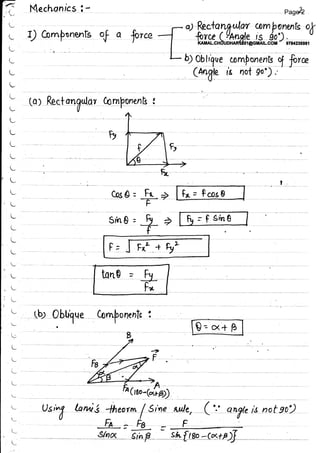 Mechanics :-
Page-2
I) Components of a force
a) Rectangular components of
force (Angle is 90°).
KAMAL.CHOUDHARY881@GMAIL.COM 9784298981
b) Oblique components of force
(Angle is not 90°).
(a) Rectangular Components :
Fy
f
Fy
θ
Fx
Cos θ = Fx / F ⇒ Fx = F cos θ
Sin θ = Fy / f ⇒ Fy = F Sin θ
F = √Fx² + Fy²
tan θ = Fy / Fx
(b) Oblique Components :
θ = α + β
B
FB
F
α
β
A
FA (180-(α+β))
Using lami's theorm / Sine rule, (∵ angle is not 90°)
FA / Sin α = FB / Sin β = F / Sin {180-(α+β)}